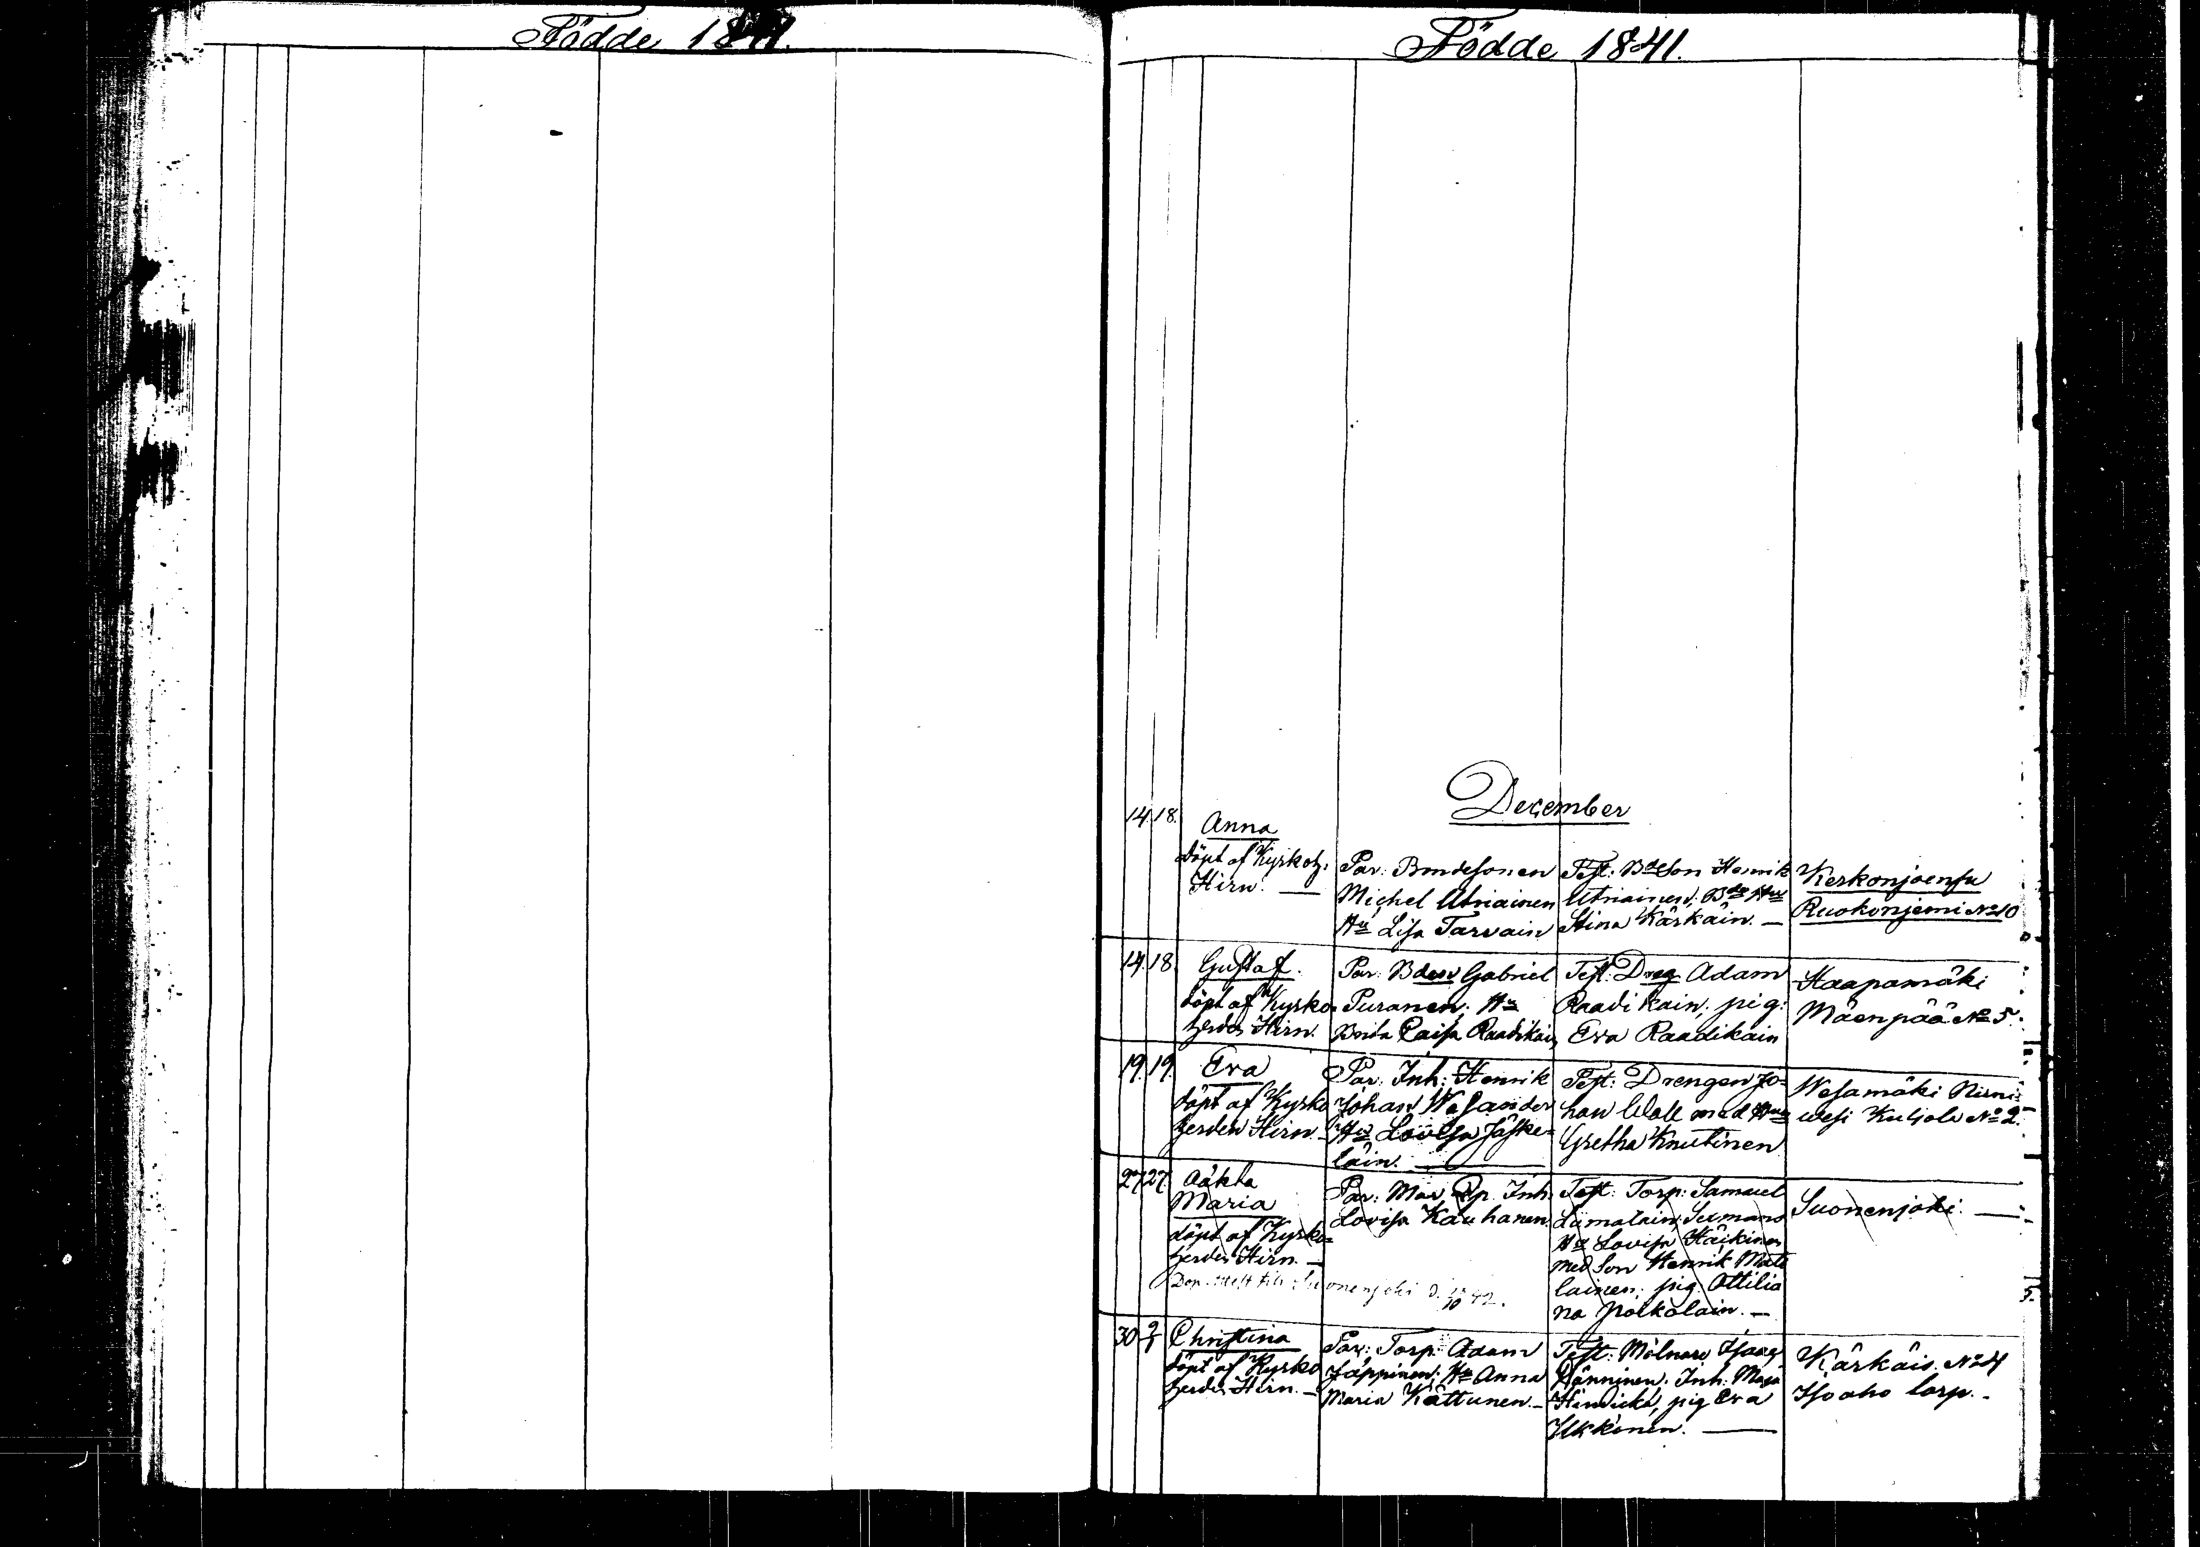 Födde 1841.
Födde 1841.
December
14. 18. Anna
döpt af Kyrkoh.
Hirn. —
Par: Bondesonen
Michel Utriainen
Hu Lisa Tarvain
Test: Bdeson Henrik
Utriainen, Bde Hu
Stina Kärkäin. —
Kerkonjoensu
Ruokoniemi No 10
14. 18. Gustaf.
döpt af Kyrko-
herden Hirn.
Par: Bden Gabriel
Puranen; Hu
Brita Caisa Raadikain
Test: Dreg Adam
Raadikain; pig:
Eva Raadikain
Haapamäki
Mäenpää No 5.
19. 19. Eva
döpt af Kyrko
herden Hirn
Par: Inh: Henrik
Johan Wesander
Hu Lovisa Jäske-
läin. —
Test: Drengen Jo-
han Wall med Hu
Gretha Knutinen
Wesamäki Niini-
wesi Kuljola No 2.
27. 27. Oäkta
Maria
döpt af Kyrko-
herden Hirn. —
Suonenjoki d. 42.
Par: Inh
Lovisa Kauhanen
Test: Torp: Samuel
Hu Lovisa
med Son Henrik Mate
lainen; pig Ottilia
na Polkolain. —
Suonenjoki. —
30 2/1 Christina
döpt af Kyrko
herden Hirn. —
Par: Torp: Adam
Jäppinen; Hu Anna
Maria Kättunen. —
Test: Mölnare Isaac
Rönninen. Inh: Maja
pig Eva
Ukkonen. —
Kärkäis. No 4
Isoaho torp. -